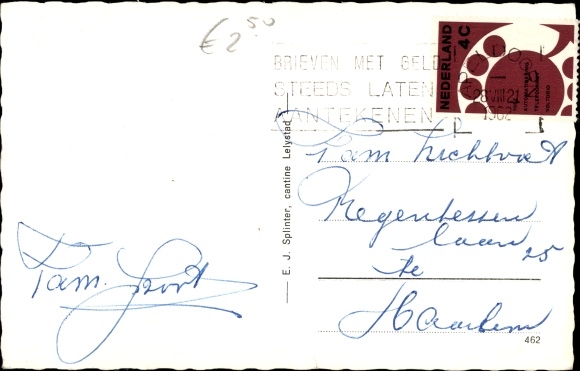 €2,50
BRIEVEN MET GELD
STEEDS LATEN
AANTEKENEN
NEDERLAND
4C
28 VIII 21
1962
E. J. Splinter, cantine Lelystad
Fam.
Regentessen
laan 25
te
Haarlem
Fam.
462